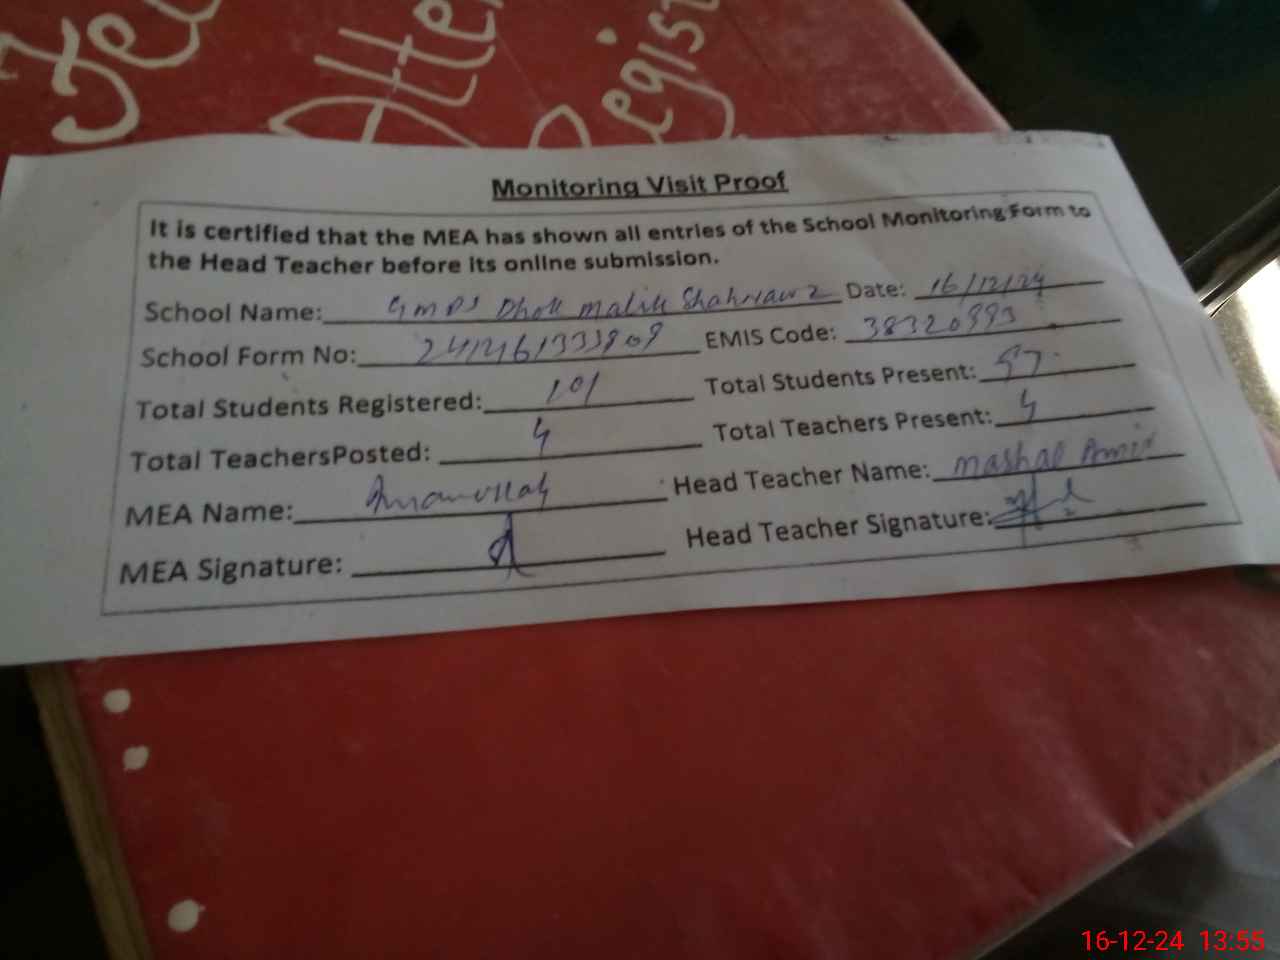 Atten
Regist
Monitoring Visit Proof
It is certified that the MEA has shown all entries of the School Monitoring Form to
the Head Teacher before its online submission.
School Name: GMPS Dhok Malik Shahnawaz Date: 16/12/24
School Form No: EMIS Code: 38320993
Total Students Registered: 101 Total Students Present:
Total TeachersPosted: 4 Total Teachers Present: 4
MEA Name: Amanullah Head Teacher Name: Mashal Amir
MEA Signature: Head Teacher Signature:
16-12-24 13:55